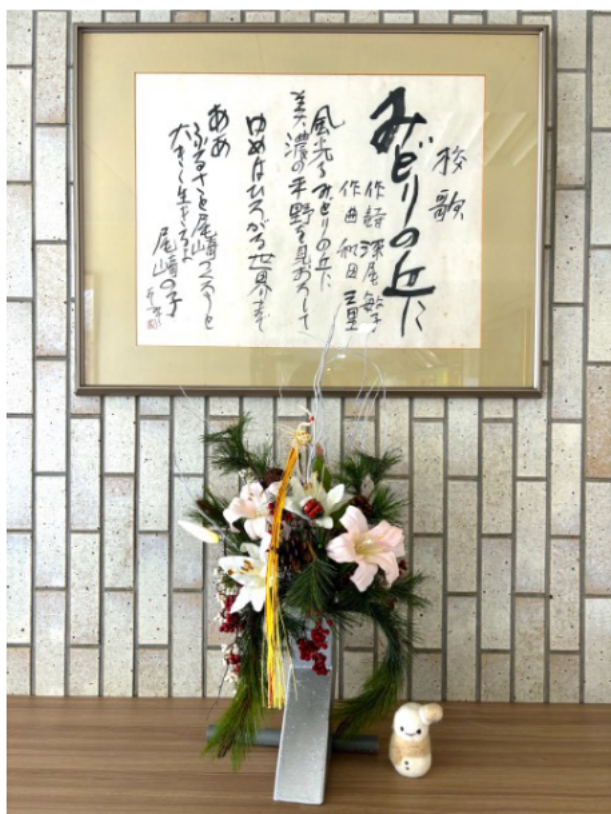 校歌
みどりの丘に
作詩 深尾敏子
作曲 和田 三里
風光るみどりの丘に
美濃の平野を見おろして
ゆめはひろがる世界まで
ああ
ふるさと尾崎つくろうと
大きく生きるよ
尾崎の子